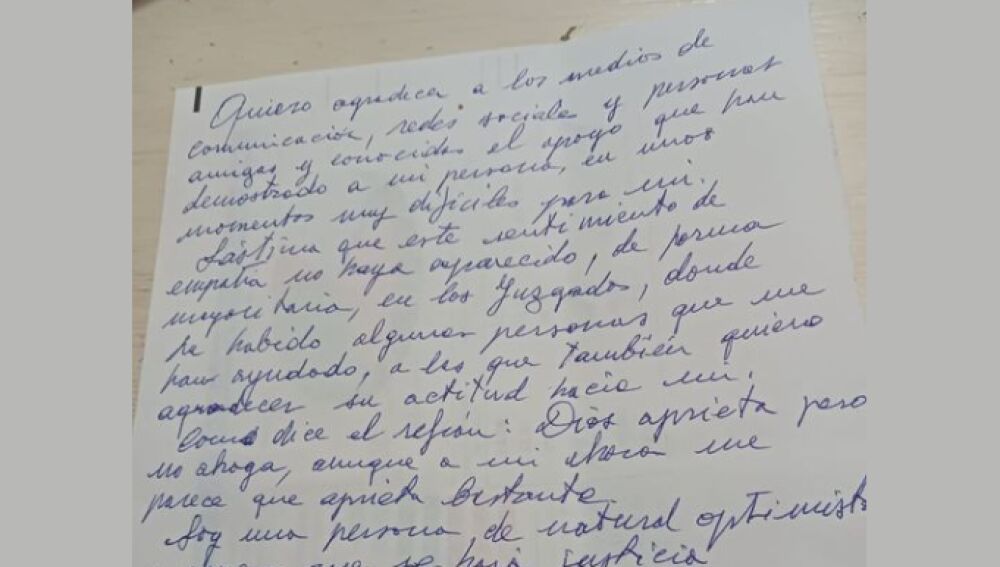 Quiero agradecer a los medios de
comunicación, redes sociales y personas
amigas y conocidas el apoyo que han
demostrado a mi persona, en unos
momentos muy difíciles para mi.
Lástima que este sentimiento de
empatía no haya aparecido, de forma
mayoritaria, en los Juzgados, donde
ha habido algunas personas que me
han ayudado, a las que también quiero
agradecer su actitud hacia mi.
Como dice el refrán: Dios aprieta pero
no ahoga, aunque a mi ahora me
parece que aprieta bastante.
Soy una persona, de natural optimista
que se hará justicia